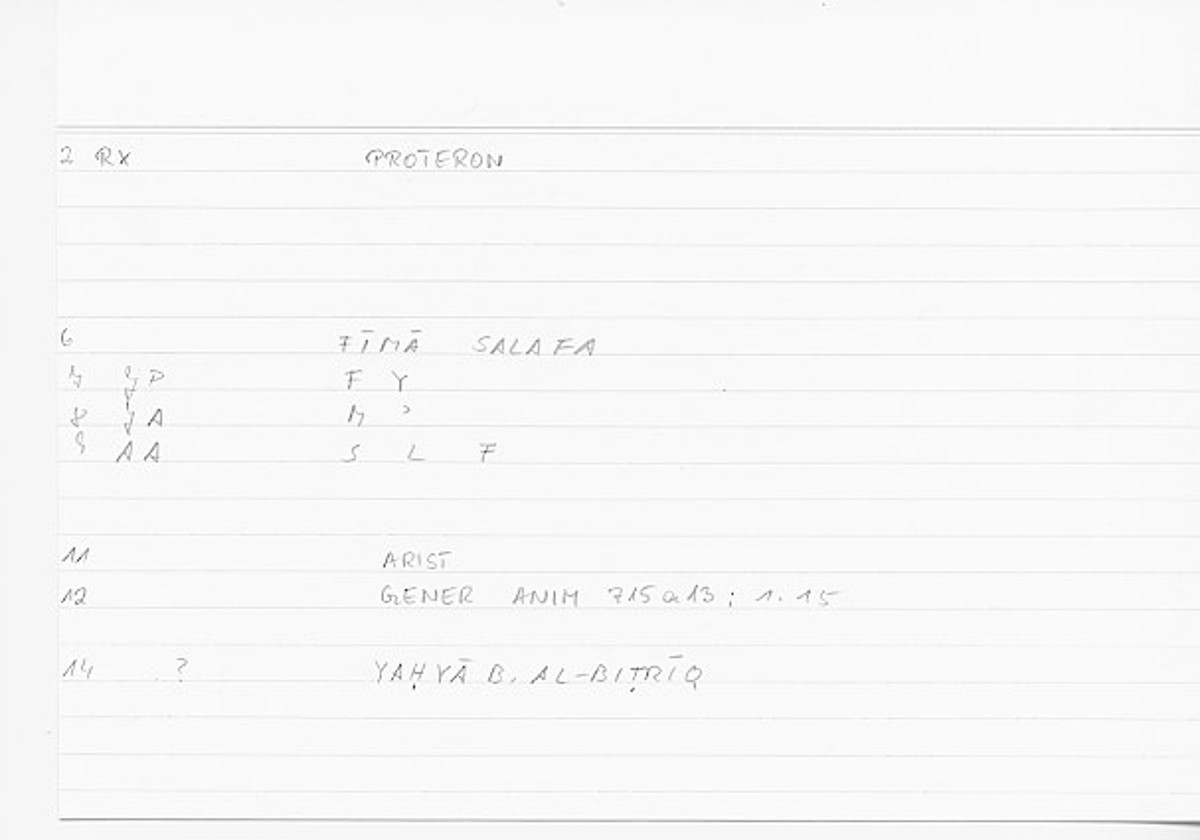 2 RX PROTERON
6 FĪMĀ SALAFA
7 P F Y
8 A M ʾ
9 AA S L F
11 ARIST
12 GENER ANIM 715a13; 1.15
14 ? YAḤYĀ B. AL-BIṬRĪQ